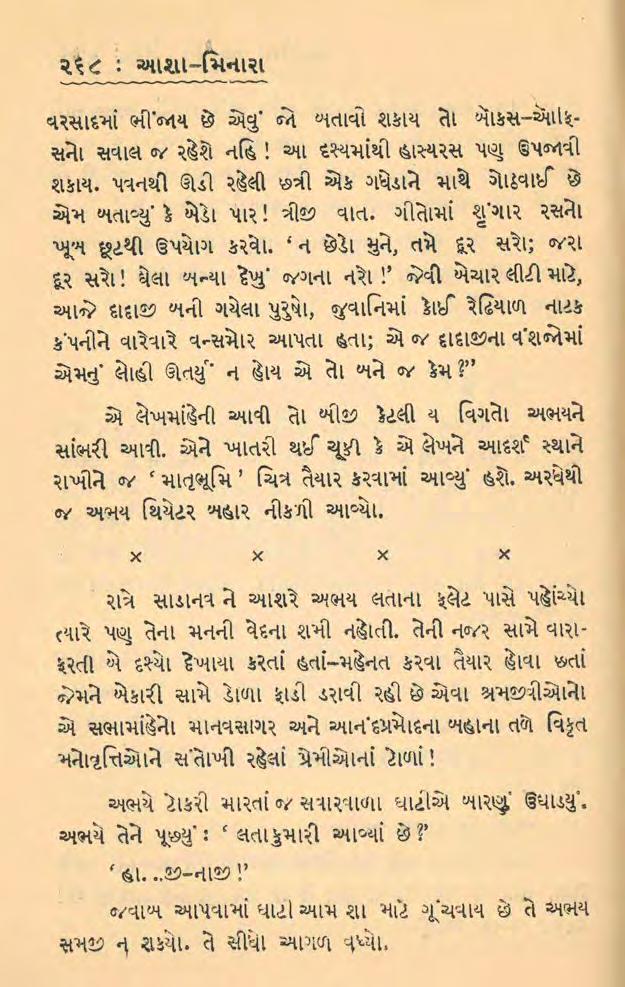 ૨૬૮ : આશા-મિનારા
વરસાદમાં ભીંજાય છે એવું જો બતાવો શકાય તો બૉકસ-ઑફિ-
સનો સવાલ જ રહેશે નહિ ! આ દૃશ્યમાંથી હાસ્યરસ પણ ઉપજાવી
શકાય. પવનથી ઊડી રહેલી છત્રી એક ગધેડાને માથે ગોઠવાઈ છે
એમ બતાવ્યું કે બેડો પાર ! ત્રીજી વાત. ગીતોમાં શૃંગાર રસનો
ખૂબ છૂટથી ઉપયોગ કરવો. ‘ ન છેડો મુને, તમે દૂર સરો; જરા
દૂર સરો ! ઘેલા બન્યા દેખું જગના નરો !’ જેવી બેચાર લીટી માટે,
આજે દાદાજી બની ગયેલા પુરુષો, જુવાનિમાં કોઈ રેઢિયાળ નાટક
કંપનીને વારેવારે વન્સમોર આપતા હતા; એ જ દાદાજીના વંશજોમાં
એમનું લોહી ઊતર્યું ન હોય એ તો બને જ કેમ ?”
એ લેખમાંહેની આવી તો બીજી કેટલી ય વિગતો અભયને
સાંભરી આવી. એને ખાતરી થઈ ચૂકી કે એ લેખને આદર્શ સ્થાને
રાખીને જ ‘ માતૃભૂમિ ’ ચિત્ર તૈયાર કરવામાં આવ્યું હશે. અરધેથી
જ અભય થિયેટર બહાર નીકળી આવ્યો.
× × × ×
રાત્રે સાડાનવ ને આશરે અભય લતાના ફ્લેટ પાસે પહોંચ્યો
ત્યારે પણ તેના મનની વેદના શમી નહોતી. તેની નજર સામે વારા-
ફરતી બે દૃશ્યો દેખાયા કરતાં હતાં–મહેનત કરવા તૈયાર હોવા છતાં
જેમને બેકારી સામે ડોળા ફાડી ડરાવી રહી છે એવા શ્રમજીવીઓનો
એ સભામાંહેનો માનવસાગર અને આનંદપ્રમોદના બહાના તળે વિકૃત
મનોવૃત્તિઓને સંતોખી રહેલાં પ્રેમીઓનાં ટોળાં !
અભયે ટોકરી મારતાં જ સવારવાળા ઘાટીએ બારણું ઉઘાડયું.
અભયે તેને પૂછયું : ‘ લતાકુમારી આવ્યાં છે ?’
‘ હા. ..જી–નાજી !’
જવાબ આપવામાં ઘાટી આમ શા માટે ગૂંચવાય છે તે અભય
સમજી ન શકયો. તે સીધો આગળ વધ્યો.